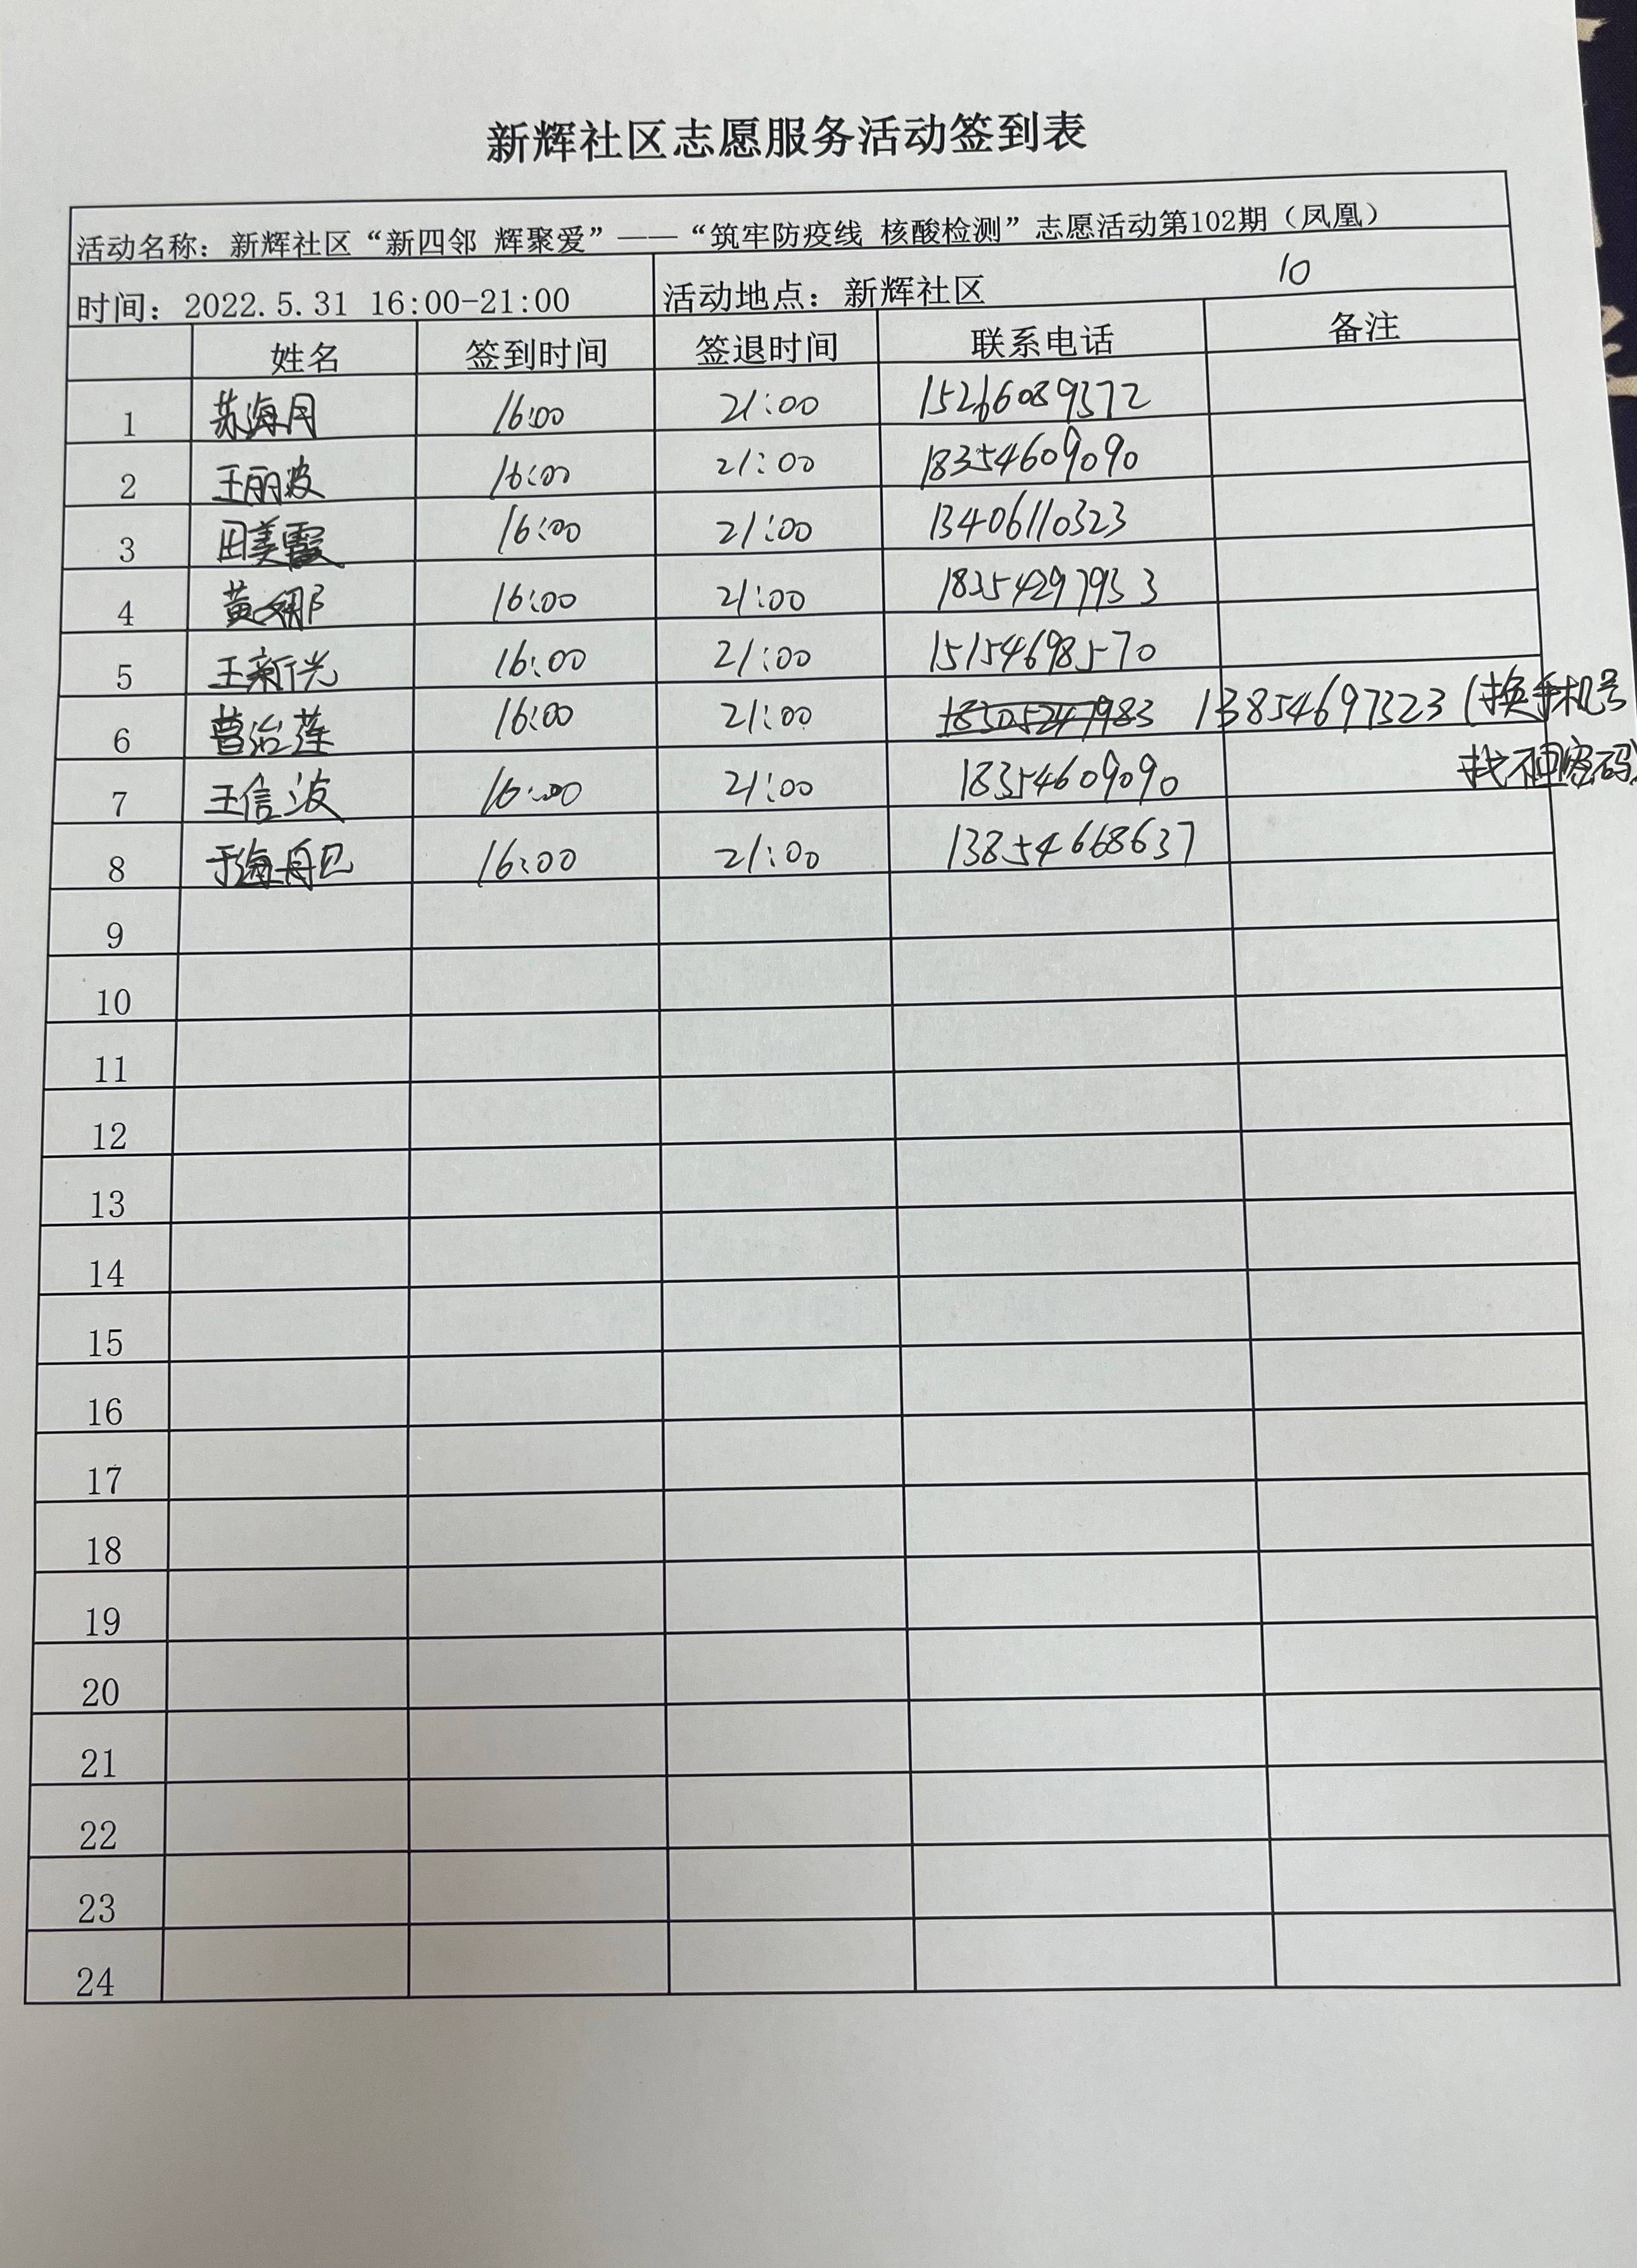 新辉社区志愿服务活动签到表
活动名称：新辉社区“新四邻 辉聚爱”——“筑牢防疫线 核酸检测”志愿活动第102期（凤凰）
时间：2022.5.31 16:00-21:00 活动地点：新辉社区 10
姓名 签到时间 签退时间 联系电话 备注
1 苏海月 16:00 21:00 15266089372
2 王丽波 16:00 21:00 18354609090
3 田美霞 16:00 21:00 13406110323
4 黄娜 16:00 21:00 18354297953
5 王新光 16:00 21:00 15154698570
6 曹治莲 16:00 21:00 13854697323（换手机号
找不回密码）
7 王信波 16:00 21:00 18354609090
8 于海 16:00 21:00 13854668637
9
10
11
12
13
14
15
16
17
18
19
20
21
22
23
24